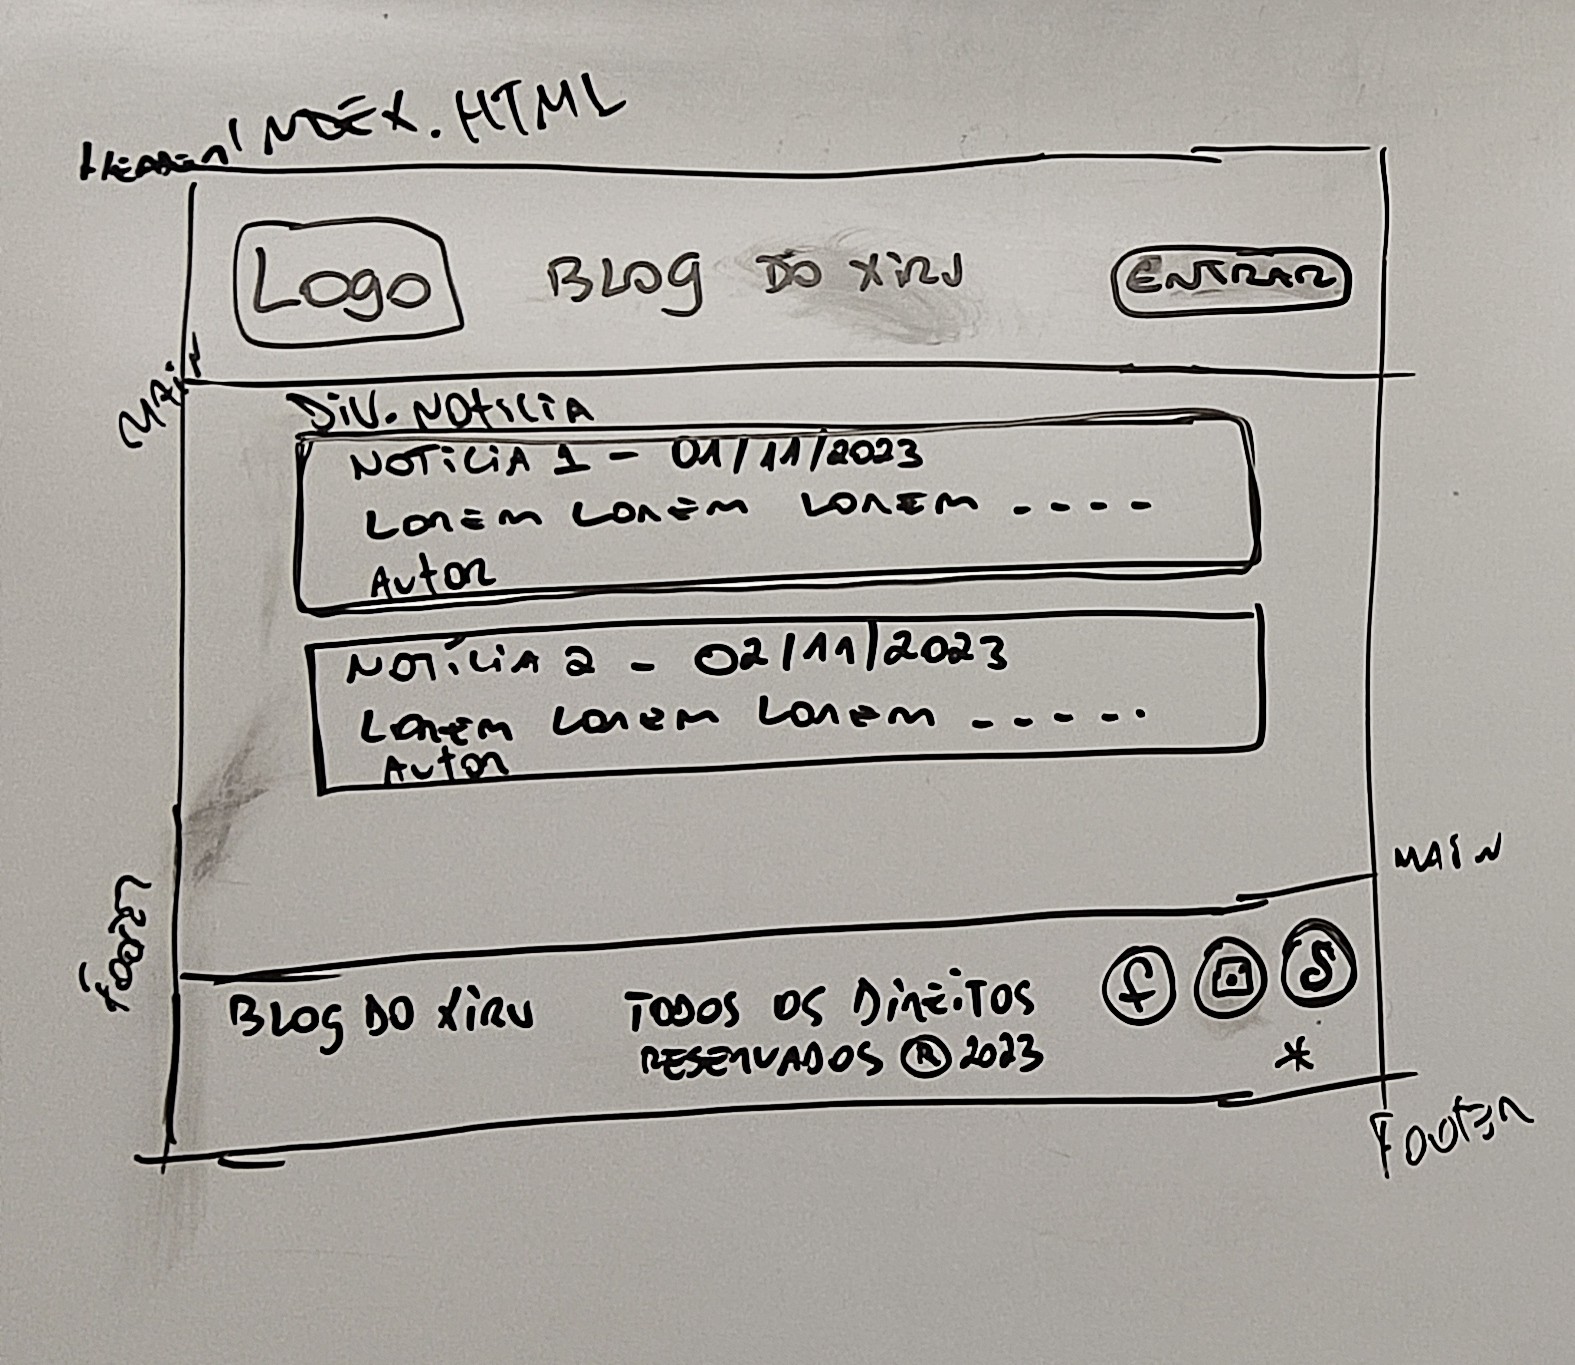 INDEX.HTML
HEADER
Logo BLOG DO XIRU ENTRAR
MAIN
DIV.NOTICIA
NOTICIA 1 - 01/11/2023
LOREM LOREM LOREM ----
AUTOR
NOTÍCIA 2 - 02/11/2023
LOREM LOREM LOREM -----
AUTOR
MAIN
FOOTER
BLOG DO XIRU TODOS OS DIREITOS f S
RESERVADOS ® 2023 *
FOOTER